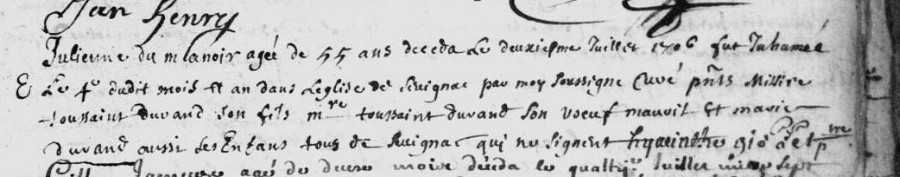 Jan Henry
Julienne du manoir ageé de 55 ans deceda Le deuxiesme Juillet 1706 fut Inhumeé
& Le 4e dudit mois et an dans Leglise de Seuignac par moy soussigne Curé pnts Missire
toussaint durand son fils mre toussaint durand son voeuf mauril Et marie
durand aussi ses Enfans tous de Seuignac qui ne signent
ageé de deux mois deceda le quattrie Juillet mil sept